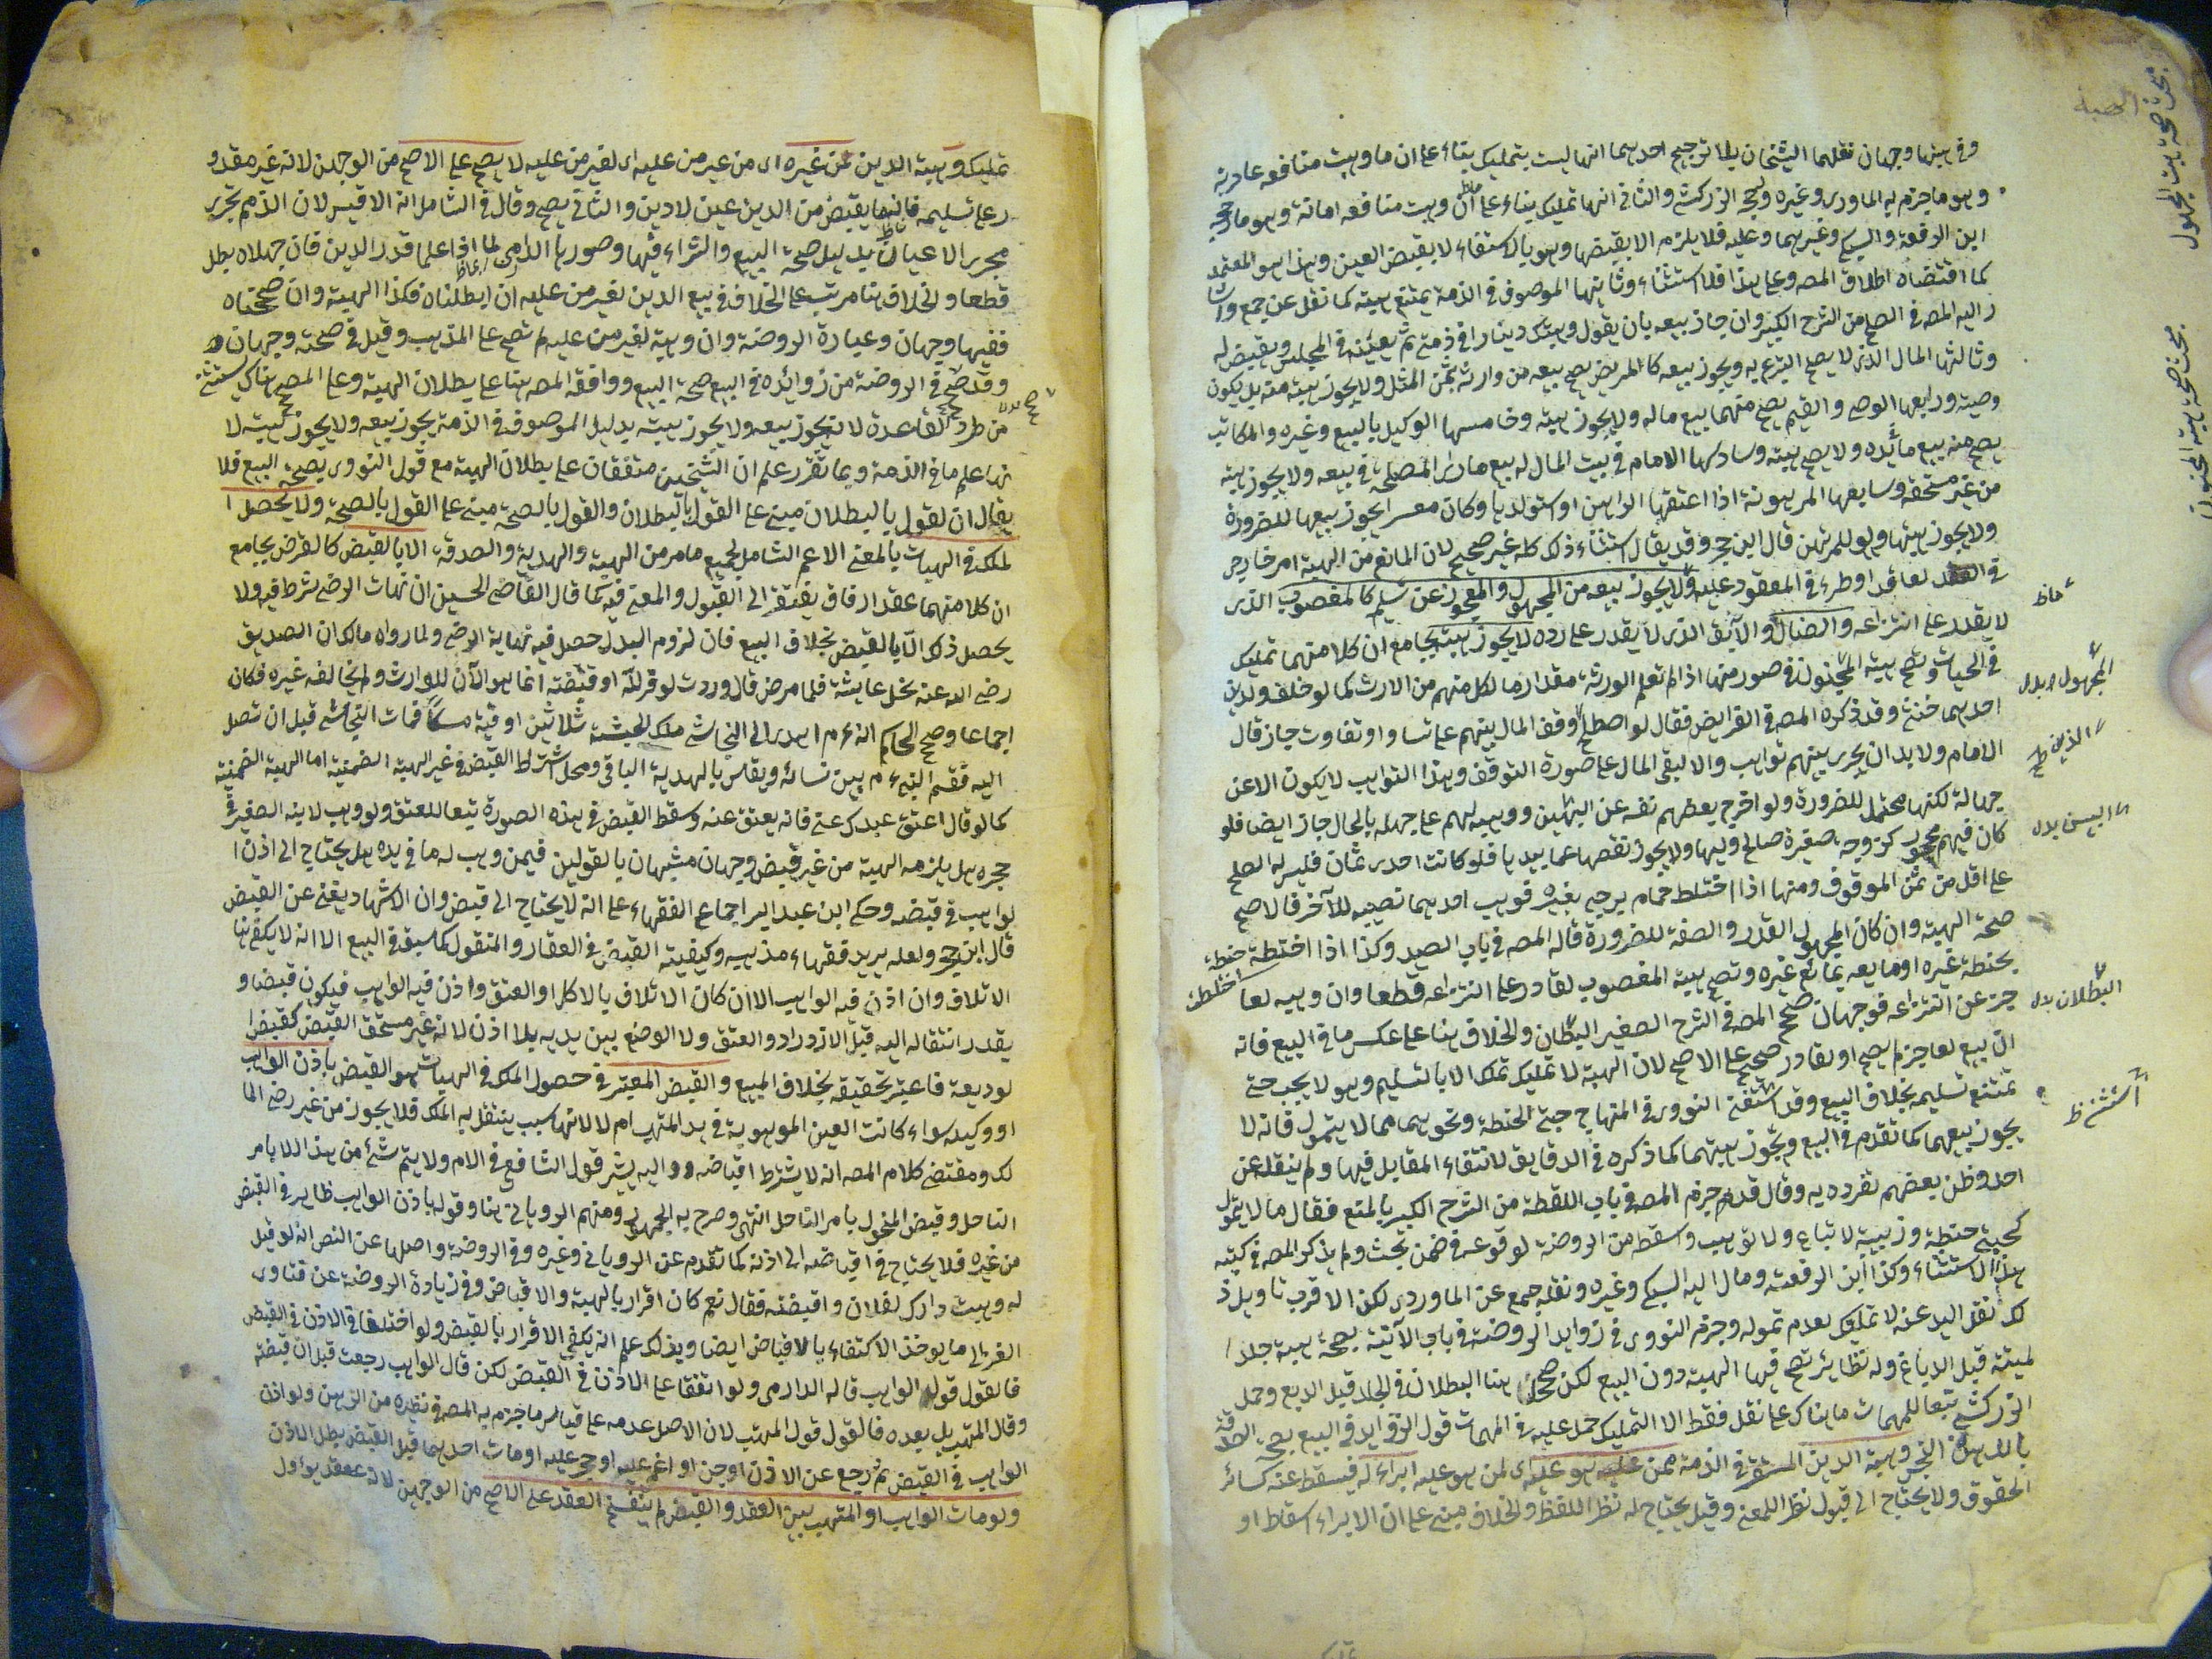 وفي هبتها وجهان نقلهما الشيخان بلا ترجيح احدهما انها ليست بتمليك بناء على ان ما وهبت منافعه عارية
وهو ما جزم به الماوردى وغيره ورجحه الزركشى والثاني انها تمليك بناء على ان ما وهبت منافعه امانة وهو ما رجحه
ابن الرفعة والسبكى وغيرهما وعليه فلا يلزم الا بقبضها وهو بالاستيفاء لا بقبض العين وهذا هو المعتمد
كما اقتضاه اطلاق المصه وعلى هذا فلا استثناء وثانيتها الموصوف في الذمة يمتنع هبته كما نقل عن جمع واشا
ر اليه المصه في الصلح من الشرح الكبير وان جاز بيعه بان يقول وهبتك دينارا في ذمتى ثم يعينه في المجلس ويقبض له
وثالثها المال الذى لا يصح التبرع به ويجوز بيعه كالمريض يصح بيعه من وارثه بثمن المثل ولا يجوز هبته منه بل يكون
وصية ورابعها الوصى والقيم يصح منهما بيع ماله ولا يجوز هبته وخامسها الوكيل بالبيع وغيره والمكاتب
يصح منه بيع ما بيده ولا يصح هبته وسادسها الامام في بيت المال له بيع ما راى المصلحة في بيعه ولا يجوز هبته
من غير مستحقه وسابعها المرهونة اذا اعتقها الراهن او استولدها وكان معسرا يجوز بيعها للضرورة
ولا يجوز هبتها ولو للمرتهن قال ابن حجر وقد يقال استثناء ذلك كله غير صحيح لان المانع من الهبة امر خارجى
في العقد لعاقد او طرء في المعقود عليه ولا يجوز بيعه من المجهول والمعجوز عن تسليمه كالمغصوب الذى
لا يقدر على انتزاعه والضال والآبق الذى لا يقدر على رده لا يجوز هبته بجامع ان كلا منهما تمليك
في الحيات وتصح هبة المجهول في صور منها اذا لم تعلم الورثة مقدار ما لكل منهم من الارث كما لو خلف ولدين
احدهما خنثى وقد ذكره المصه في الفرايض فقال لو اصطلح وقف المال بينهم على تساو او تفاوت جاز قال
الامام ولا بد ان يجرى بينهم تواهب والا لبقى المال على صورة التوقف وهذا التواهب لا يكون الا عن
جهالة لكنها محتمل للضرورة ولو اخرج بعضهم نفسه عن البين ووهبه لهم على جهله بالحال جاز ايضا فلو
كان فيهم محجور كزوجة صغيرة صالح وليها ولا يجوز نقصها عما بيدها فلو كانت احدى ثمان فليس له الصلح
على اقل من ثمن الموقوف ومنها اذا اختلط حمام برجيه بغيره فوهب احدهما نصيبه للآخر فالاصح
صحة الهبة وان كان المجهول القدر والصفة للضرورة قاله المصه في باب الصيد وكذا اذا اختلطت حنطته
بحنطة غيره او مايعه بمائع غيره وتصح هبة المغصوب لقادر على انتزاعه قطعا وان وهبه لعا
جز عن انتزاعه فوجهان صحح المصه في الشرح الصغير البطلان والخلاف هنا على عكس ما في البيع فانه
ان بيع لعاجز لم يصح او لقادر صح على الاصح لان الهبة لا تمليك تملك الا بالتسليم وهو لا يجب حتى
تمتنع تسليمه بخلاف البيع وقد استثنى النووى في المنهاج حبتى الحنطة ونحوهما مما لا يتمول فانه لا
يجوز بيعهما كما تقدم في البيع ويجوز هبتهما كما ذكره في الدقايق لانتفاء المقابل فيها ولم ينقله عن
احد وظن بعضهم تفرده به وقال قد جزم المصه في باب اللقطة من الشرح الكبير بالمنع فقال ما لا يتمول
كحبة حنطة وزبيبة لا تباع ولا توهب واسقطه من الروضة لوقوعه في ضمن بحث ولم يذكر المصه في كتبه
هذا الاستثناء وكذا ابن الرفعة ومال اليه السبكى وغيره ونقله جمع عن الماوردى لكن الاقرب تاويل ذ
لك نقل اليد عنه لا تمليك لعدم تموله وجزم النووى في زوايد الروضة في باب الآنية بصحة هبة جلد ا
لميتة قبل الدباغ وله نظائر تصح فيها الهبة دون البيع لكن صحح هنا البطلان في الجلد قبل الدبغ وحمل
الزركشى تبعا للمهمات ما هناك على نقل فقط الا التمليك حمل عليه في المهمات قول الزوايد في البيع بصحة الصدقة
بالدهن النجس وهبة الدين المستقر في الذمة ممن هو عليه اى لمن هو عليه ابراء له فيسقط عنه كسائر
الحقوق ولا يحتاج الى قبول نظرا للمعنى وقيل يحتاج له نظرا للفظ والخلاف مبنى على ان الابراء اسقاط او
الهبة
مبحث صحة هبة المجهول
المجهول بدله
البطلان بدله
استثنى ظ
تمليك وهبة الدين لمن غيره اى من غير من عليه اى لغير من عليه لا يصح على الاصح من الوجهين لانه غير مقدو
ر على تسليمه فانما يقبض من الدين عين لا دين والثاني يصح وقال في الشامل انه الاقيس لان الذمم تجرى
مجرى الاعيان بدليل صحة البيع والشراء فيها وصورها الدارمى بما اذا علما قدر الدين فان جهلاه بطل
قطعا والخلاف هنا مرتب على الخلاف في بيع الدين لغير من عليه ان ابطلناه فكذا الهبة وان صححناه
ففيها وجهان وعبارة الروضة وان وهبه لغير من عليه لم تصح على المذهب وقيل في صحته وجهان
وقد صح في الروضة من زوائده في البيع صحة البيع ووافقه المصه هنا على بطلان الهبة وعلى المصه هناك يستثنى
من طرد القاعدة لانه يجوز بيعه ولا يجوز هبته بدليل الموصوف في الذمة يجوز بيعه ولا يجوز هبته لا
نها على ما في الذمة وبما تقرر علم ان الشيخين متفقان على بطلان الهبة مع قول النووى بصحة البيع فلا
يقال ان القول بالبطلان مبنى على القول بالبطلان والقول بالصحة مبنى على القول بالصحة ولا يحصل ا
لملك في الهبات بالمعنى الاعم الشامل لجميع ما مر من الهبة والهدية والصدقة الا بالقبض كالقرض بجامع
ان كلا منهما عقد ارفاق يفتقر الى القبول والمعنى فيه كما قال القاضى الحسين ان نهاية الرضى شرط فيه ولا
يحصل ذلك الا بالقبض بخلاف البيع فان لزوم البدل حصل فيه نهاية الرضى ولما رواه مالك ان الصديق
رضى الله عنه نحل عايشة فلما مرض قال وددت لو حزته او قبضته انما هو الآن للوارث ولم يخالفه غيره فكان
اجماعا وصح الحاكم انه م اهدى الى النجاشى ملك الحبشة ثلاثين اوقية مسكا فمات النجاشى قبل ان تصل
اليه فقسم النبى م بين نسائه ويقاس بالهدية الباقى ومحل اشتراط القبض في غير الهبة الضمنية اما الهبة الضمنية
كما لو قال اعتق عبدك عنى فانه يعتق عنه وسقط القبض في هذه الصورة تبعا للعتق ولو وهب لابنه الصغير في
حجره هل يلزمه الهبة من غير قبض وجهان مشبهان بالقولين فيمن وهب له ما في يده هل يحتاج الى اذن ا
لواهب في قبضه وحكى ابن عبد البر اجماع الفقهاء على انه لا يحتاج الى قبض وان الاشهاد يغنى عن القبض
قال ابن حجر ولعله يريد فقهاء مذهبه وكيفية القبض في العقار والمنقول كما سبق في البيع الا انه لا يكفى هنا
الاتلاف وان اذن فيه الواهب الا ان كان الاتلاف بالاكل او العتق واذن فيه الواهب فيكون قبضا و
يقدر انتقاله اليه قبل الازدراد والعتق ولا الوضع بين يديه بلا اذن لانه غير مستحق القبض كقبض ا
لوديعة فاعتبر تحقيقه بخلاف المبيع والقبض المعتبر في حصول الملك في الهبات هو القبض باذن الواهب
او وكيله سواء كانت العين الموهوبة في يد المتهب ام لا لانها سبب ينتقل به الملك فلا يجوز من غير رضى الما
لك ومقتضى كلام المصه انه لا يشترط اقباضه واليه يشير قول الشافعى في الام ولا يتم شئ من هذا الا بامر
الناحل وقبض المنحول بامر الناحل انتهى وصرح به الجمهور ومنهم الرويانى هنا وقوله باذن الواهب ظاهر في القبض
من غيره فلا يحتاج في اقباضه الى اذنه كما تقدم عن الرويانى وغيره وفي الروضة واصلها عن النص انه لو قيل
له وهبت دارك لفلان واقبضته فقال نعم كان اقرارا بالهبة والاقباض وفي زيادة الروضة عن فتاوى
الغزالى ما يوخذ الاكتفاء بالاقباض ايضا وبذلك علم انه يكفى الاقرار بالقبض ولو اختلفا في الاذن في القبض
فالقول قول الواهب قاله الدارمى ولو اتفقا على الاذن في القبض لكن قال الواهب رجعت قبل ان قبضته
وقال المتهب بل بعده فالقول قول المتهب لان الاصل عدمه على قياس ما جزم به المصه في نظيره من الرهن ولو اذن
الواهب في القبض ثم رجع عن الاذن او جن او اغمى عليه او حجر عليه او مات احدهما قبل القبض بطل الاذن
ولو مات الواهب او المتهب بين العقد والقبض لم ينفسخ العقد على الاصح من الوجهين لانه عقد يؤول